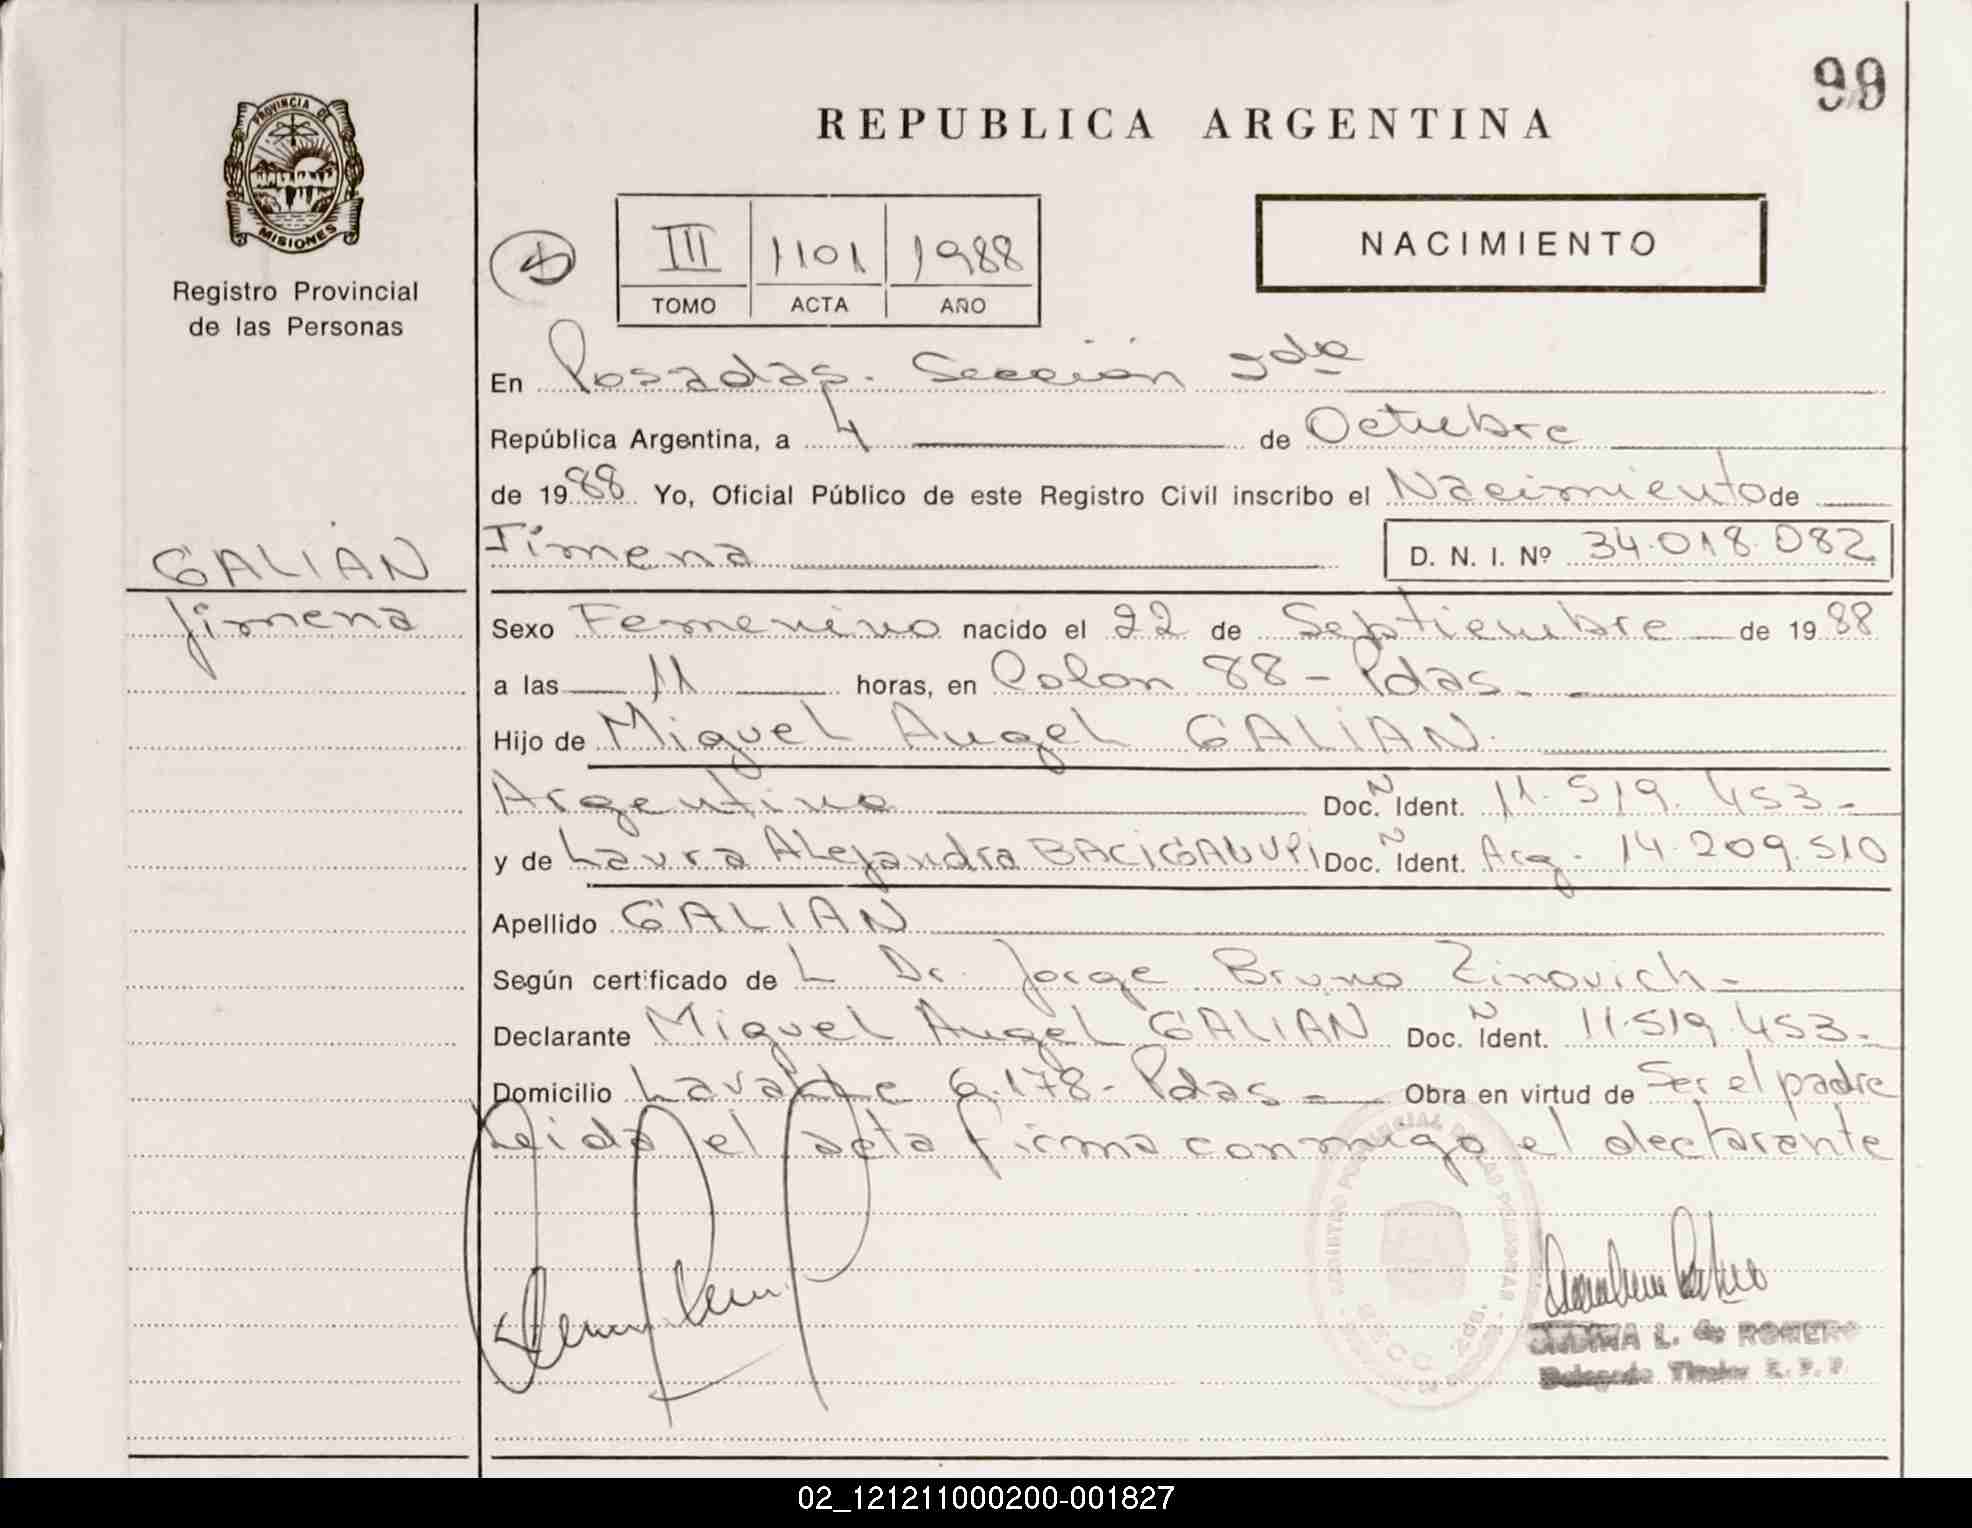 99
PROVINCIA DE
MISIONES
Registro Provincial
de las Personas
REPUBLICA ARGENTINA
NACIMIENTO
III 1101 1988
TOMO ACTA AÑO
En Posadas. Sección 2da
República Argentina, a 4 de Octubre
de 1988 Yo, Oficial Público de este Registro Civil inscribo el Nacimiento de
GALIAN
Jimena
Jimena D. N. I. Nº 34.018.082
Sexo Femenino nacido el 22 de Septiembre de 1988
a las 11 horas, en Colon 88 - Pdas.
Hijo de Miguel Angel GALIAN.
Argentino Doc. N Ident. 11.519.453-
y de Laura Alejandra BACIGALUPI Doc. N Ident. Arg. 14.209.510
Apellido GALIAN
Según certificado de L Dr. Jorge Bruno Zinovich-
Declarante Miguel Angel GALIAN Doc. N Ident. 11.519.453-
Domicilio Lavalle 6.178- Pdas - Obra en virtud de Ser el padre
Leida el acta firma conmigo el declarante
L. de ROMERO
Delegado Titular R. P. P.
02_121211000200-001827